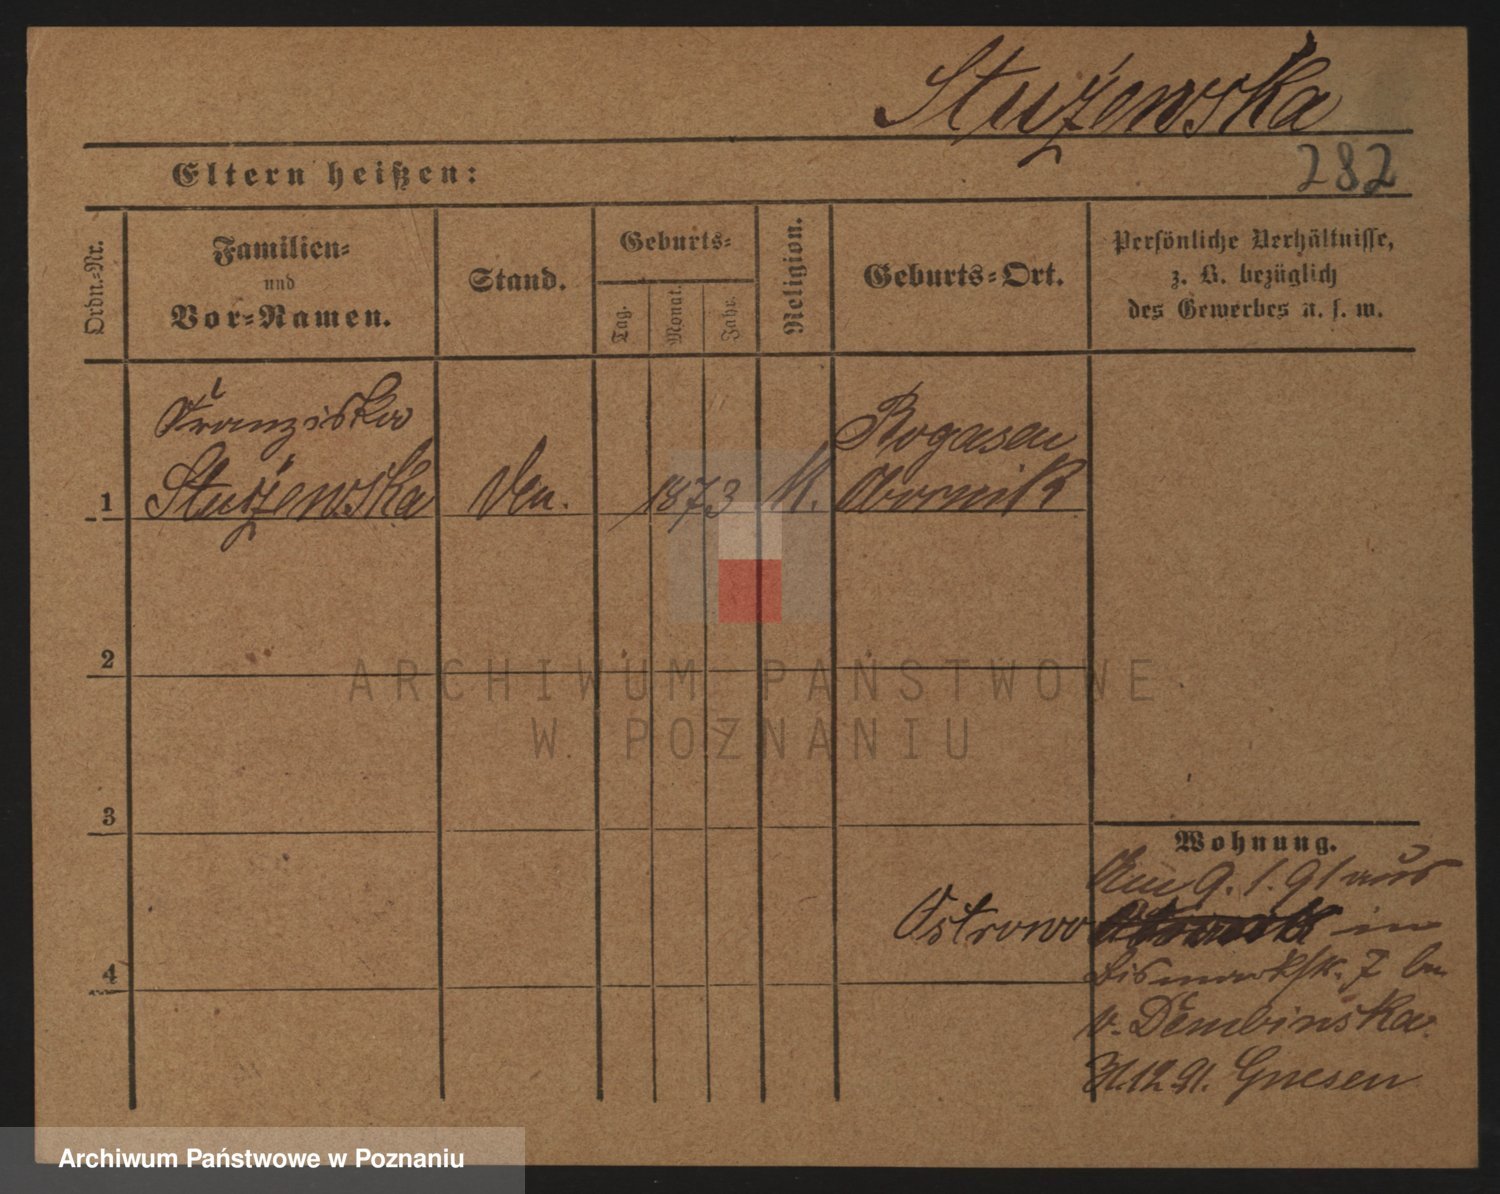 Stużewska
282
Eltern heißen:
Ordn.-Nr.
Familien-
und
Vor-Namen.
Stand.
Geburts-
Tag.
Monat.
Jahr.
Religion.
Geburts-Ort.
Persönliche Verhältnisse,
z. B. bezüglich
des Gewerbes u. s. w.
Franziska
Stużewska
1873
Rogasen
Obornik
1
2
3
4
Wohnung.
Am 9. 1. 91 aus
Ostrowo in
Bismarkstr. 7 bei
v. Dembinska.
31.12 91. Gnesen
ARCHIWUM PAŃSTWOWE
W POZNANIU
Archiwum Państwowe w Poznaniu